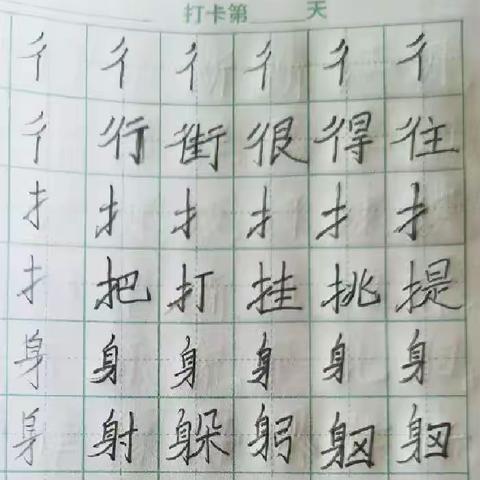 打卡第____天
彳 彳 彳 彳 彳 彳
彳 行 街 很 得 往
扌 扌 扌 扌 扌 扌
扌 把 打 挂 挑 提
身 身 身 身 身 身
身 射 躲 躬 躯 躯